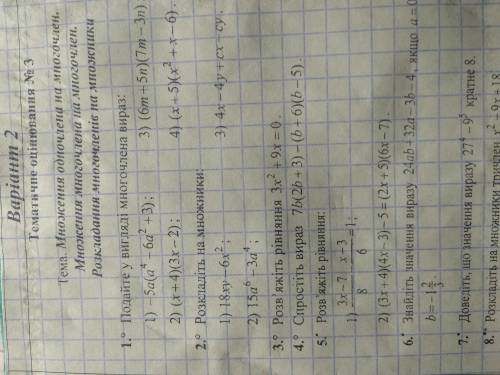 Варіант 2
Тематичне оцінювання № 3
Тема. Множення одночлена на многочлен.
Множення многочлена на многочлен.
Розкладання многочленів на множники
1.° Подайте у вигляді многочлена вираз:
1) −5a(a⁴ − 6a² + 3); 3) (6m + 5n)(7m − 3n)
2) (x + 4)(3x − 2); 4) (x + 5)(x² + x − 6).
2.° Розкладіть на множники:
1) 18xy − 6x²; 3) 4x − 4y + cx − cy.
2) 15a⁶ − 3a⁴;
3.° Розв'яжіть рівняння 3x² + 9x = 0.
4.° Спростіть вираз 7b(2b + 3) − (b + 6)(b − 5).
5.• Розв'яжіть рівняння:
1) (3x − 7)/8 − (x − 3)/6 = 1;
2) (3x + 4)(4x − 3) − 5 = (2x + 5)(6x − 7).
6.• Знайдіть значення виразу 24ab + 32a − 3b − 4, якщо a = 0
b = −1 2/3.
7.• Доведіть, що значення виразу 27⁴ − 9⁵ кратне 8.
8.•• Розкладіть на множники тричлен + 18